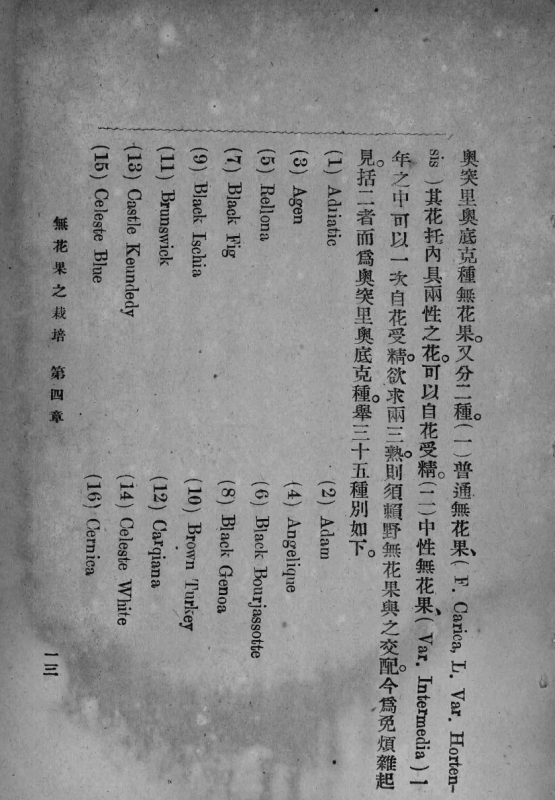 奧突里奧底克種無花果。又分二種(一)普通無花果、(F. Carica, L. Var. Horten-
sis)其花托內具兩性之花。可以自花受精。(二)中性無花果、(Var. Intermedia)一
年之中可以一次自花受精。欲求兩三熟、則須賴野無花果與之交配。今爲免煩雜起
見。括二者而爲奧突里奧底克種。舉三十五種別如下。
(1) Adriatic (2) Adam
(3) Agen (4) Angelique
(5) Rellona (6) Black Bourjassotte
(7) Black Fig (8) Black Genoa
(9) Black Ischia (10) Brown Turkey
(11) Brunswick (12) Carqiana
(13) Castle Keundedy (14) Celeste White
(15) Celeste Blue (16) Cernica
無花果之栽培 第四章 一三